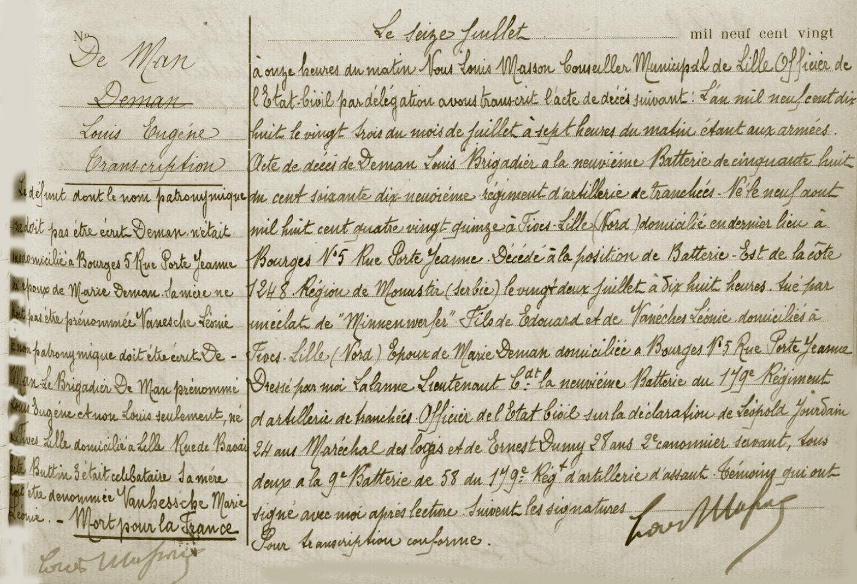 No
De Man
Deman
Louis Eugène
Transcription
Le défunt dont le nom patronymique
ne doit pas être écrit Deman n'était
domicilié à Bourges 5 Rue Porte Jeanne
époux de Marie Deman. Sa mère ne
doit pas être prénommée Vanesche Léonie
nom patronymique doit être écrit De-
Man. Le Brigadier De Man prénommé
Louis Eugène et non Louis seulement, né
Fives Lille domicilié à Lille Rue de Bavai
Buttin 3 était célibataire Sa mère
doit être dénommée Vanhessche Marie
Léonie. - Mort pour la France
Louis Masson
Le seize Juillet mil neuf cent vingt
à onze heures du matin Nous Louis Masson Conseiller Municipal de Lille Officier de
l'Etat-Civil par délégation avons transcrit l'acte de décès suivant: L'an mil neuf cent dix
huit le vingt trois du mois de juillet à sept heures du matin étant aux armées.
Acte de décès de Deman Louis Brigadier a la neuvième Batterie de cinquante huit
du cent soixante dix neuvième régiment d'artillerie de tranchées. Né le neuf aout
mil huit cent quatre vingt quinze à Fives-Lille (Nord) domicilié en dernier lieu à
Bourges N°5 Rue Porte Jeanne. Décédé à la position de Batterie-Est de la côte
1248. Région de Monastir (Serbie) le vingt deux juillet à dix huit heures. Tué par
un éclat de "Minnenwerfer" Fils de Edouard et de Vanéches Léonie domiciliés à
Fives-Lille (Nord) Epoux de Marie Deman domiciliée a Bourges N°5 Rue Porte Jeanne
Dressé par moi Lalanne Lieutenant Cdt la neuvième Batterie du 179e Régiment
d'artillerie de tranchées. Officier de l'Etat Civil sur la déclaration de Léopold Jourdain
24 ans Maréchal des logis et de Ernest Dumy 27 ans 2e canonnier servant, tous
deux a la 9e Batterie de 58 du 179e Régt d'artillerie d'assaut. Témoins qui ont
signé avec moi après lecture. Suivent les signatures
Pour transcription conforme.
Louis Masson